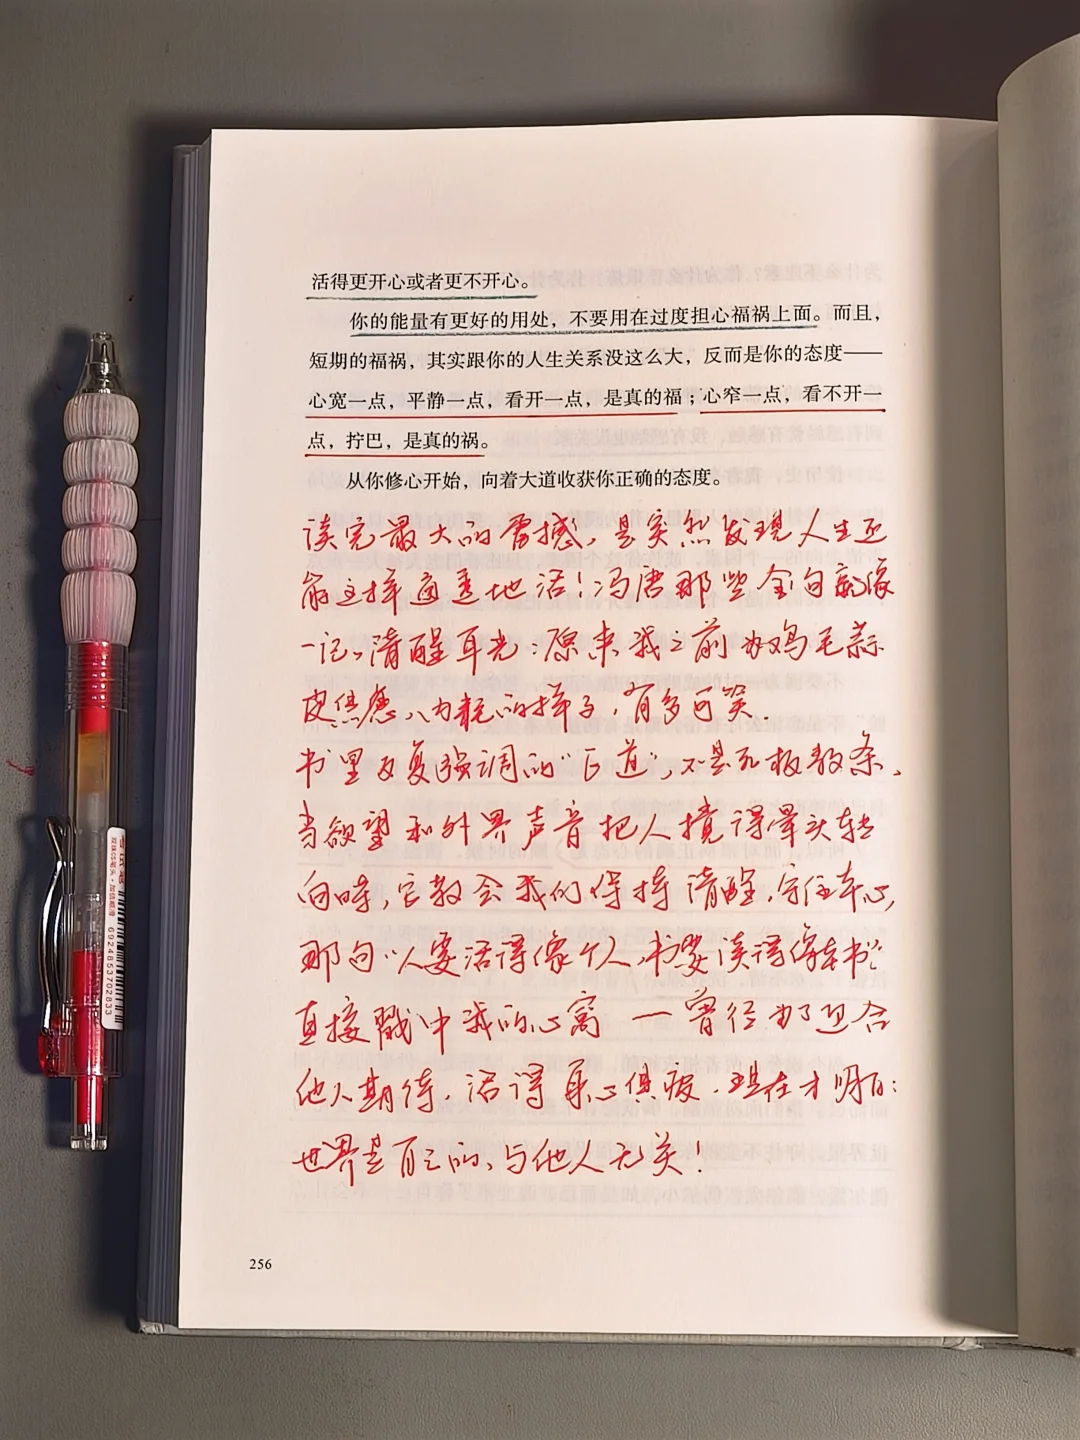 活得更开心或者更不开心。
你的能量有更好的用处，不要用在过度担心福祸上面。而且，
短期的福祸，其实跟你的人生关系没这么大，反而是你的态度——
心宽一点，平静一点，看开一点，是真的福；心窄一点，看不开一
点，拧巴，是真的祸。
从你修心开始，向着大道收获你正确的态度。
读完最大的震撼，是突然发现人生还
能这样通透地活！冯唐那些金句就像
一记清醒耳光：原来我之前为鸡毛蒜
皮焦虑、内耗的样子，有多可笑.
书里反复强调的“正道”，不是死板教条，
当欲望和外界声音把人搅得晕头转
向时，它教会我们保持清醒，守住本心，
那句“人要活得像个人，书要读得像本书”
直接戳中我的心窝 — 曾经为了迎合
他人期待，活得身心俱疲．现在才明白：
世界是自己的、与他人无关！
256
6924853702833